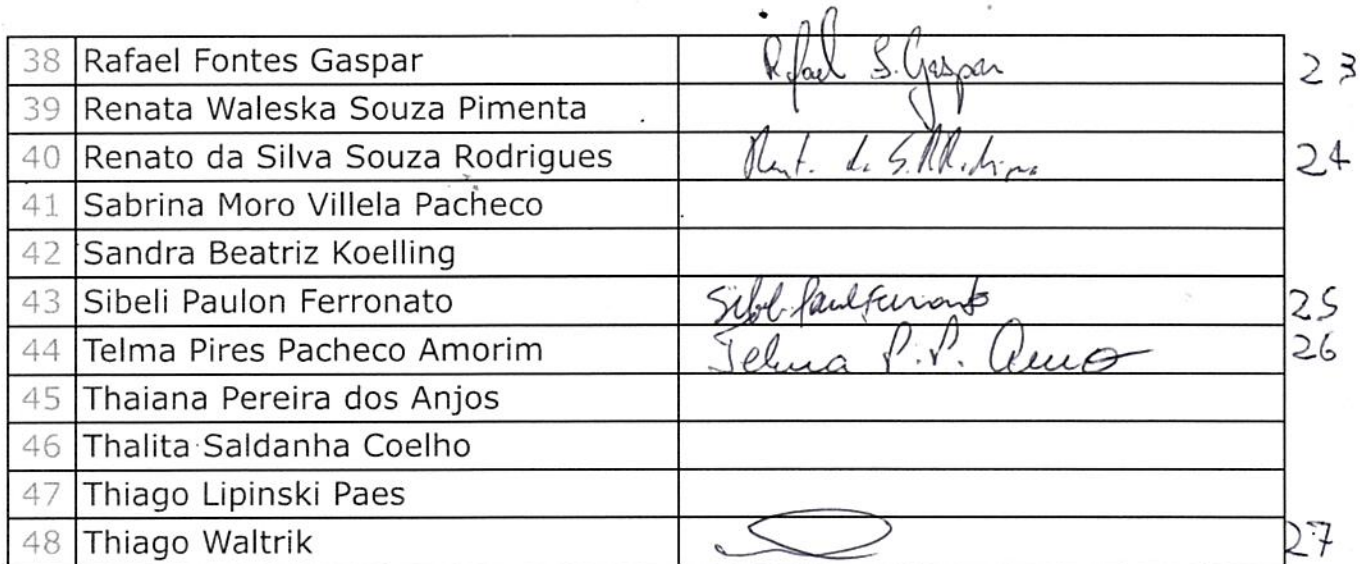 38 Rafael Fontes Gaspar Rafael S. Gaspar 23
39 Renata Waleska Souza Pimenta
40 Renato da Silva Souza Rodrigues 24
41 Sabrina Moro Villela Pacheco
42 Sandra Beatriz Koelling
43 Sibeli Paulon Ferronato 25
44 Telma Pires Pacheco Amorim Telma P.P. 26
45 Thaiana Pereira dos Anjos
46 Thalita Saldanha Coelho
47 Thiago Lipinski Paes
48 Thiago Waltrik 27